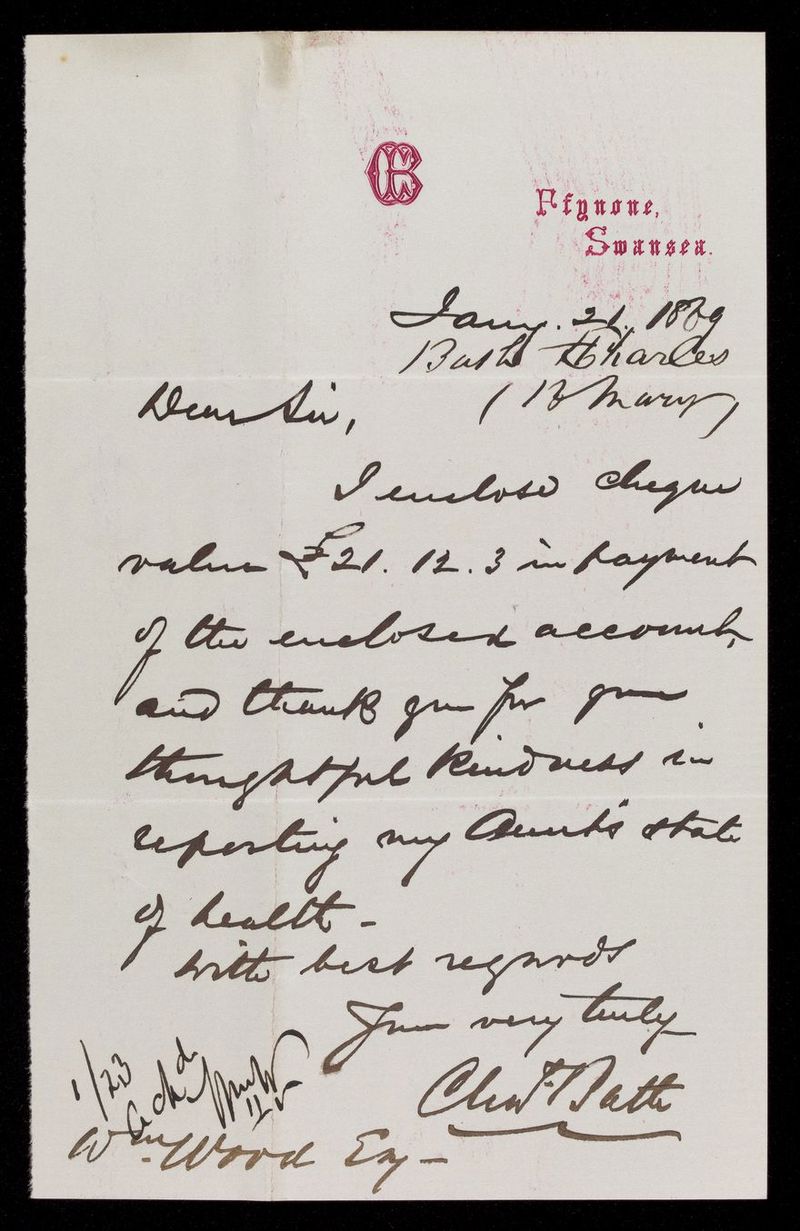 CB
Ffynone,
Swansea.
Jany. 21. 1869
Bath Charles
(B Mary)
Dear Sir,
I enclose cheque
value £21. 12. 3 in payment
of the enclosed account,
and thank you for your
thoughtful kindness in
reporting my Aunt's state
of health -
With best regards
Yours very truly
Chas. Bath
1/23
Ackd
Wm Wood Esq -